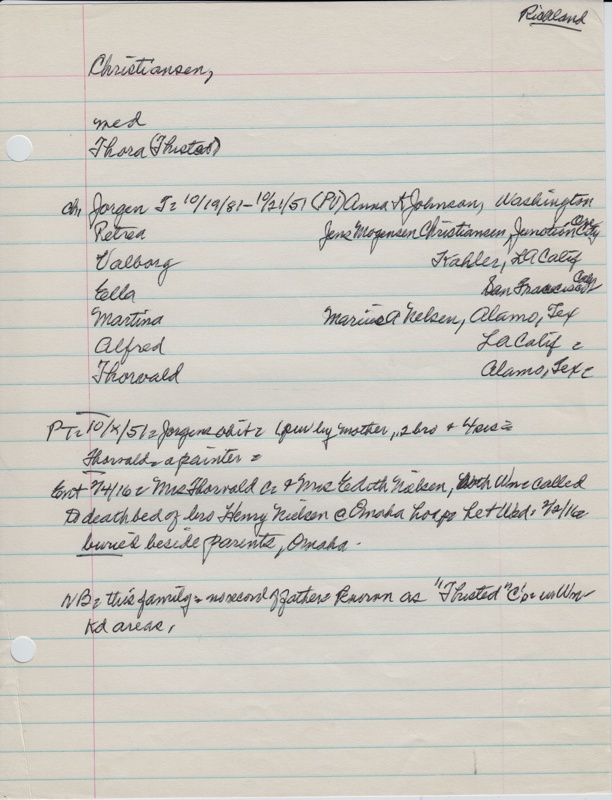 Richland
Christiansen,
med
Thora (Thisted)
ch, Jorgen J= 10/19/81-10/21/51 (Pt) Anna K Johnson, Washington
Petrea Jens Mogensen Christiansen, Junction City Ore
Valborg Kahler, LA Calif
Ella San Francisco Calif
Martina Marius A Nelsen, Alamo, Tex
Alfred LA Calif =
Thorwald Alamo, Tex=
PT= 10/x/51= Jorgens obit= (pur by mother, 2 bro + 4 sis=
Thorvald= a painter =
Ent 3/4/16= Mrs Thorvald C= & Mrs Edith Nielsen, both Wm= called
to deathbed of bro Henry Nielsen @ Omaha hosp= let Wed= 3/2/16=
buried beside parents, Omaha.
NB= this family= no record of father= known as "Thisted" C's= in Wm-
Kd areas,